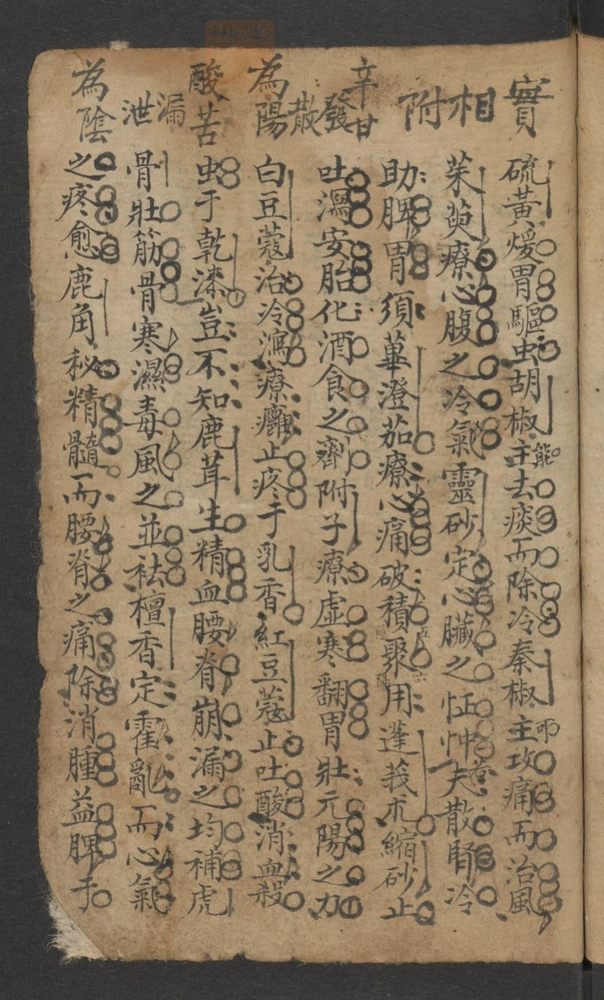 實
相
附
辛甘
發
散
為
陽
酸
苦
漏
泄
為
陰
硫黃煖胃驅虫胡椒主去痰而除冷秦椒主攻痛而治風
能
即
茱萸療心腹之冷氣靈砂定心臟之怔忡夫散腎冷
助脾胃須蓽澄茄療心痛破積聚用蓬莪朮縮砂止
吐瀉安胎化酒食之劑附子療虛寒翻胃壯元陽之力
白豆蔻治冷瀉療癰止疼于乳香紅豆蔻止吐酸消血殺
虫于乾漆豈不知鹿茸生精血腰脊崩漏之均補虎
骨壯筋骨寒濕毒風之並祛檀香定霍亂而心氣
之疼愈鹿角秘精髓而腰脊之痛除消腫益脾于